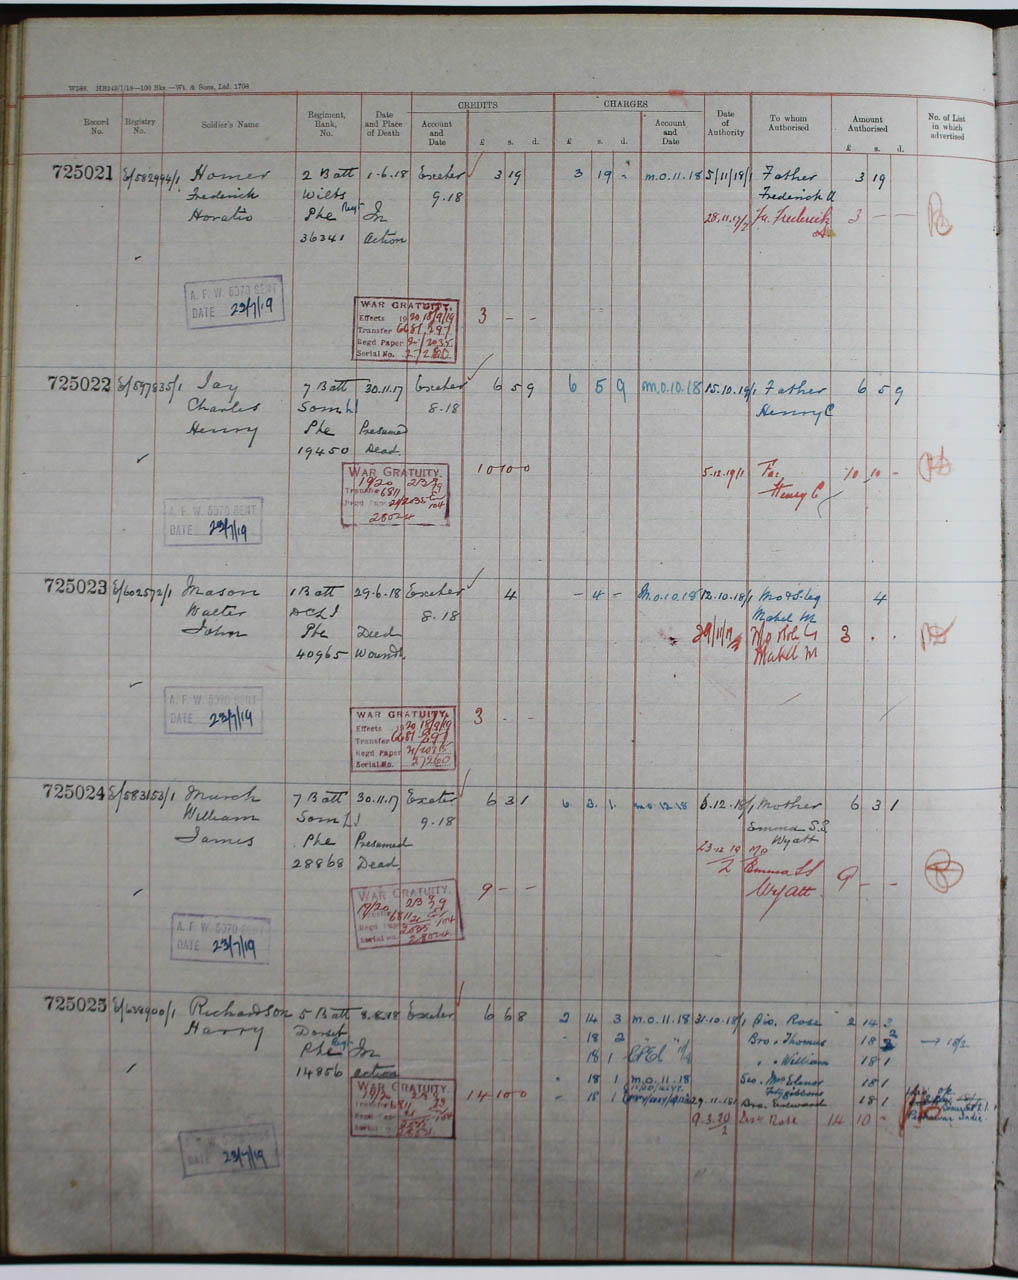 W588. HB243/1/18—100 Bks.—Wt. & Sons, Ltd. 1708
Record No. Registry No. Soldier's Name Regiment, Rank, No. Date and Place of Death CREDITS Account and Date £ s. d. CHARGES £ s. d. Account and Date Date of Authority To whom Authorised Amount Authorised £ s. d. No. of List in which advertised
725021 E/582994/1 Homer 2 Batt 1-6.18 Exeter 3 19 3 19 - M.O.11.18 5/11/18/1 Father 3 19
Frederick Wilts 9.18 Frederick
Horatio Pte Regt In 28.11.19/2 Fa. Frederick 3 — —
36341 Action
A. F. W. 5070 SENT
DATE 23/7/19
WAR GRATUITY.
Effects 19/20 18/9/19
Transfer 6681 297
Regd Paper 2035
Serial No.
3 - -
725022 E/597835/1 Jay 7 Batt 30.11.17 Exeter 6 5 9 6 5 9 M.O.10.18 15.10.18/1 Father 6 5 9
Charles Som LI 8.18 Henry C
Henry Pte Presumed
19450 Dead.
10 10 0 5.12.19/1 Fa. 10 10 -
Henry C
WAR GRATUITY.
19/20
Transfer 6811
Regd Paper 2035
28024
A. F. W. 5070 SENT
DATE 23/7/19
725023 E/602572/1 Mason 1 Batt 29-6.18 Exeter 4 - 4 - M.O.10.18 12.10.18/1 Mo & S. Leg 4
Walter DCLI 8.18 Mabel M
John Pte Died 29/11/19 Mo & Sole L 3 . .
40965 Wounds. Mabel M
A. F. W. 5070 SENT
DATE 23/7/19
WAR GRATUITY.
Effects 19/20 18/9/19
Transfer 6681 297
Regd Paper
Serial No. 27260
3 - -
725024 E/583153/1 Murch 7 Batt 30.11.17 Exeter 6 3 1 6 3 1 M.O.12.18 6.12.18/1 Mother 6 3 1
William Som LI 9.18 Emma S.S
James Pte Presumed Wyatt
28868 Dead. 23.12.19 Mo
2 Emma SS 9 - -
Wyatt
9 - -
WAR GRATUITY.
19/20
Transfer 6811
Regd Paper 2035
Serial No. 28024
A. F. W. 5070 SENT
DATE 23/7/19
725025 E/638900/1 Richardson 5 Batt 8.8.18 Exeter 6 6 8 2 14 3 M.O.11.18 31.10.18/1 Sis. Rose 2 14 3
Harry Dorset 18 2 Bro. Thomas 18 2 → 18/2
Pte Regt In 18 1 " William 18 1
14856 action 18 1 M.O.11.18 Sis. Mrs Elanor 18 1
Fitzgibbons
18 1 Bro. Edward 18 1
WAR GRATUITY.
19/20
Transfer 6811
Regd Paper
Serial
14 10 0 9.3.20/2 Sis Rose 14 10 -
DATE 23/7/19